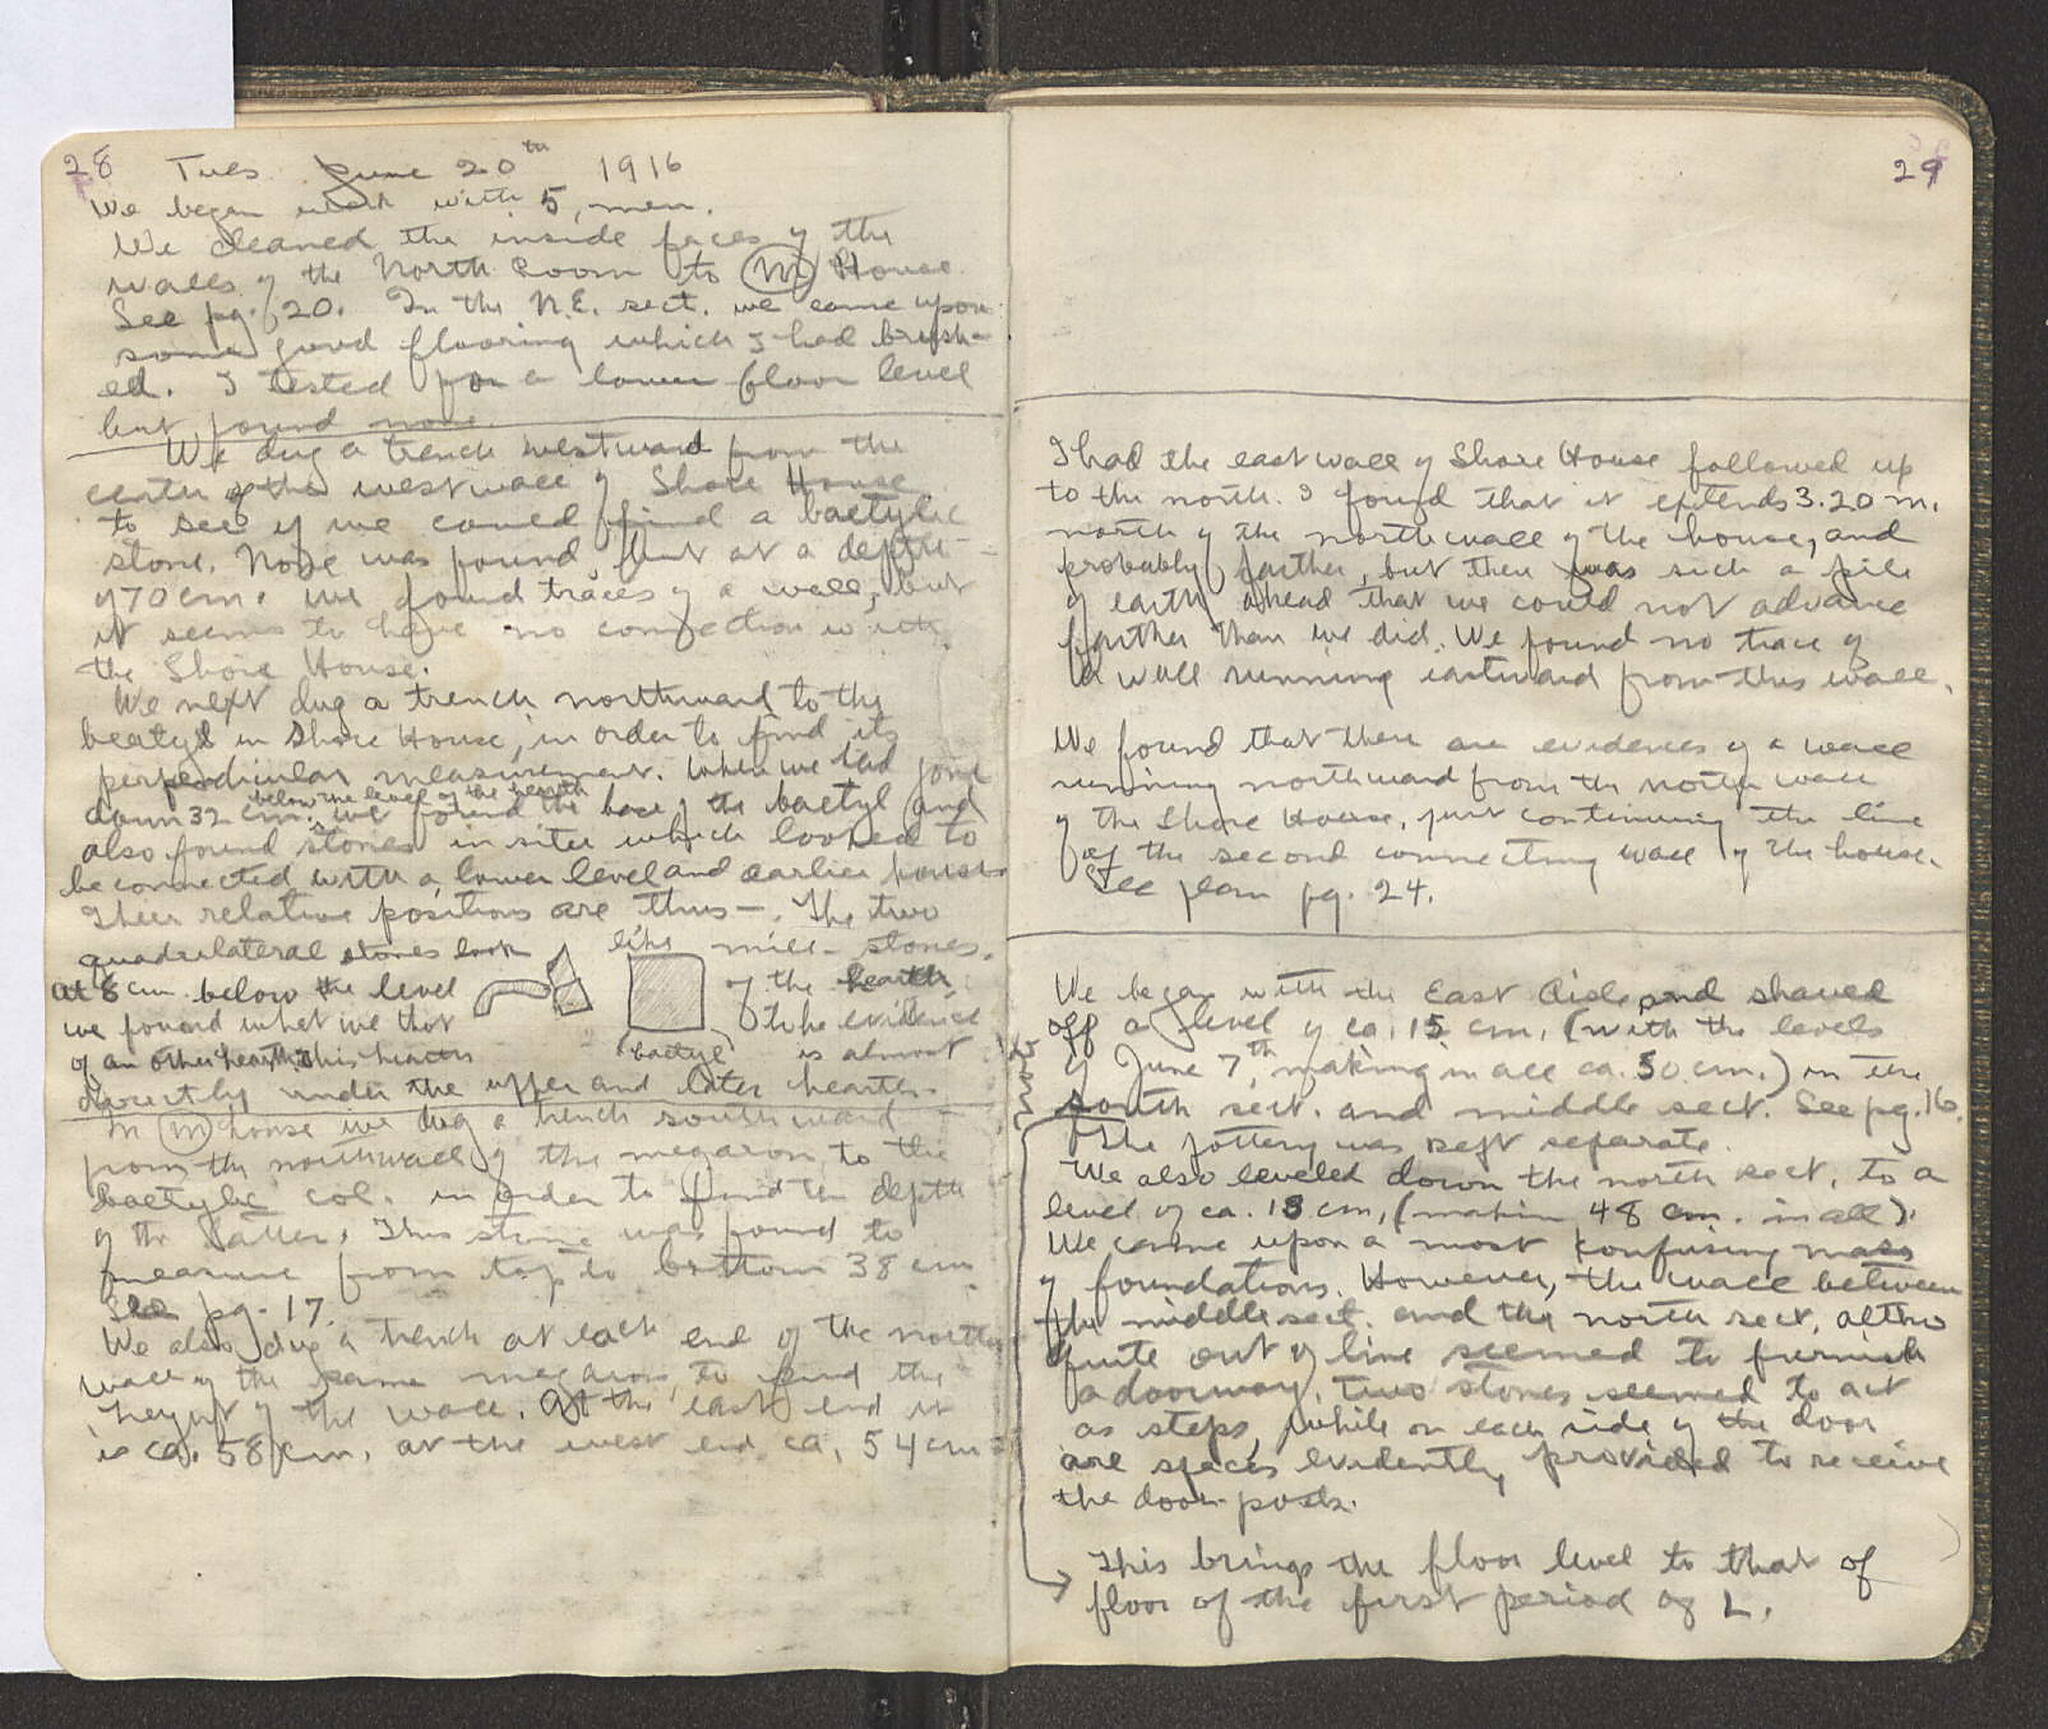 28 Tues June 20th 1916
We began work with 5 men.
We cleaned the inside faces of the
walls of the North Room to M House.
See pg. 20. In the N.E. sect. we came upon
some good flooring which I had brush-
ed. I tested for a lower floor level
but found none.
We dug a trench westward from the
center of the west wall of Shore House
to see if we could find a baetylic
stone. None was found, but at a depth
of 70 cm. we found traces of a wall, but
it seems to have no connection with
the Shore House.
We next dug a trench northward to the
beatyl in Shore House, in order to find its
perpendicular measurement. When we had gone
below the level of the hearth
down 32 cm. we found the base of the baetyl and
also found stones in situ which looked to
be connected with a lower level and earlier house.
Their relative positions are thus —. The two
quadrilateral stones look like mill-stones.
At 8 cm. below the level of the hearth
we found what we that to be evidence
of an other hearth. This hearth is almost
baetyl
directly under the upper and later hearth.
In M house we dug a trench southward
from the north wall of the megaron to the
baetylic col. in order to find the depth
of the latter. This stone was found to
measure from top to bottom 38 cm.
See pg. 17.
We also dug a trench at each end of the north
wall of the same megaron, to find the
heyght of the wall. At the east end it
is ca. 58 cm. at the west end ca. 54 cm.
29
I had the east wall of Shore House followed up
to the north. I found that it extends 3.20 m.
north of the north wall of the house, and
probably farther, but there was such a pile
of earth ahead that we could not advance
farther than we did. We found no trace of
a wall running eastward from this wall.
We found that there are evidences of a wall
running northward from the north wall
of the Shore House, just continuing the line
of the second connecting wall of the house.
See plan pg. 24.
We began with the East Aisle and shaved
off a level of ca. 15 cm. (with the levels
of June 7th, making in all ca. 50 cm.) in the
south sect. and middle sect. See pg. 16.
note
The pottery was kept separate.
We also leveled down the north sect. to a
level of ca. 18 cm, (makin 48 cm. in all).
We came upon a most confusing mass
of foundations. However, the wall between
the middle sect. and the north sect. altho
quite out of line seemed to furnish
a doorway. Two stones seemed to act
as steps, while on each side of the door
are spaces evidently provided to receive
the door-posts.
This brings the floor level to that of
floor of the first period of L.